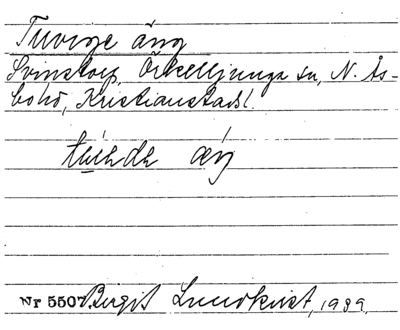 Tuverge äng
Svinstorp, Örkelljunga sn, N. Ås-
bo hd, Kristianstads l.
æŋ
Nr 5507 Birgit Lundkvist, 1989.